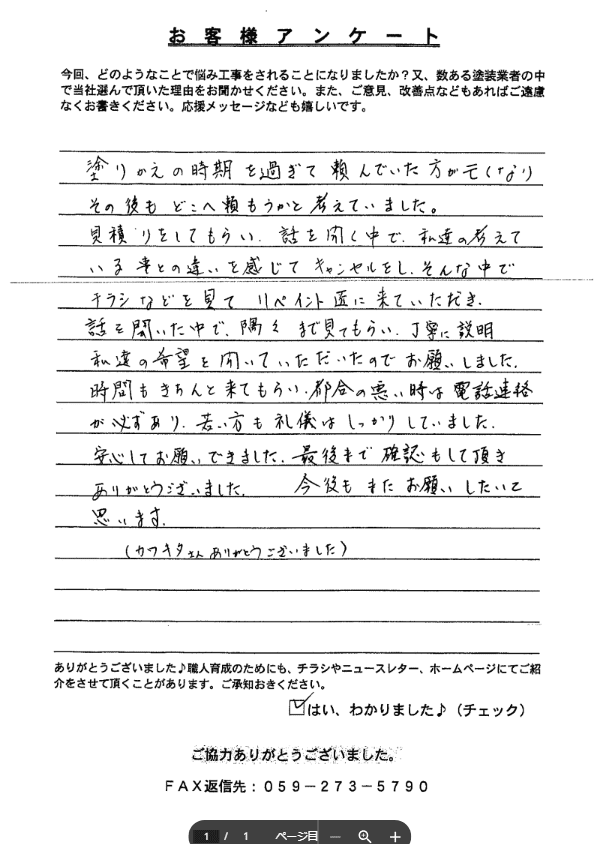 お客様アンケート
今回、どのようなことで悩み工事をされることになりましたか？又、数ある塗装業者の中
で当社選んで頂いた理由をお聞かせください。また、ご意見、改善点などもあればご遠慮
なくお書きください。応援メッセージなども嬉しいです。
塗りかえの時期を過ぎて頼んでいた方が亡くなり
その後もどこへ頼もうかと考えていました。
見積りをしてもらい、話を聞く中で、私達の考えて
いる事との違いを感じてキャンセルをし、そんな中で
チラシなどを見てリペイント匠に来ていただき、
話を聞いた中で、隅々まで見てもらい、丁寧に説明
私達の希望を聞いていただいたのでお願いしました。
時間もきちんと来てもらい、都合の悪い時は電話連絡
が必ずあり、若い方も礼儀はしっかりしていました。
安心してお願いできました。最後まで確認もして頂き
ありがとうございました。今後もまたお願いしたいと
思います。
（カワキタさんありがとうございました）
ありがとうございました♪職人育成のためにも、チラシやニュースレター、ホームページにてご紹
介をさせて頂くことがあります。ご承知おきください。
はい、わかりました♪（チェック）
ご協力ありがとうございました。
ＦＡＸ返信先：０５９－２７３－５７９０
1 / 1 ページ目